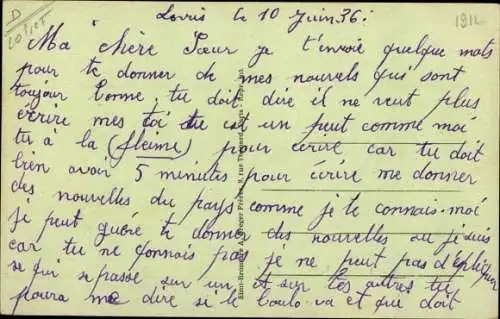 Lorris le 10 Juin 36.
1912
D
Ma Chère Sœur je t'envoie quelque mots
pour te donner de mes nouvels qui sont
toujour bonne tu doit dire il ne veut plus
écrire mes toi tu est un peut comme moi
tu à la (fleime) pour écrire car tu doit
bien avoir 5 minutes pour écrire me donner
des nouvelles du pays comme je te connais. moi
je peut guère te donner des nouvelles ou je suis
car tu ne connais pas je ne peut pas d'épliquer
se qui se passe sur un et sur les autres tu
poura me dire si le boulo va et que doit